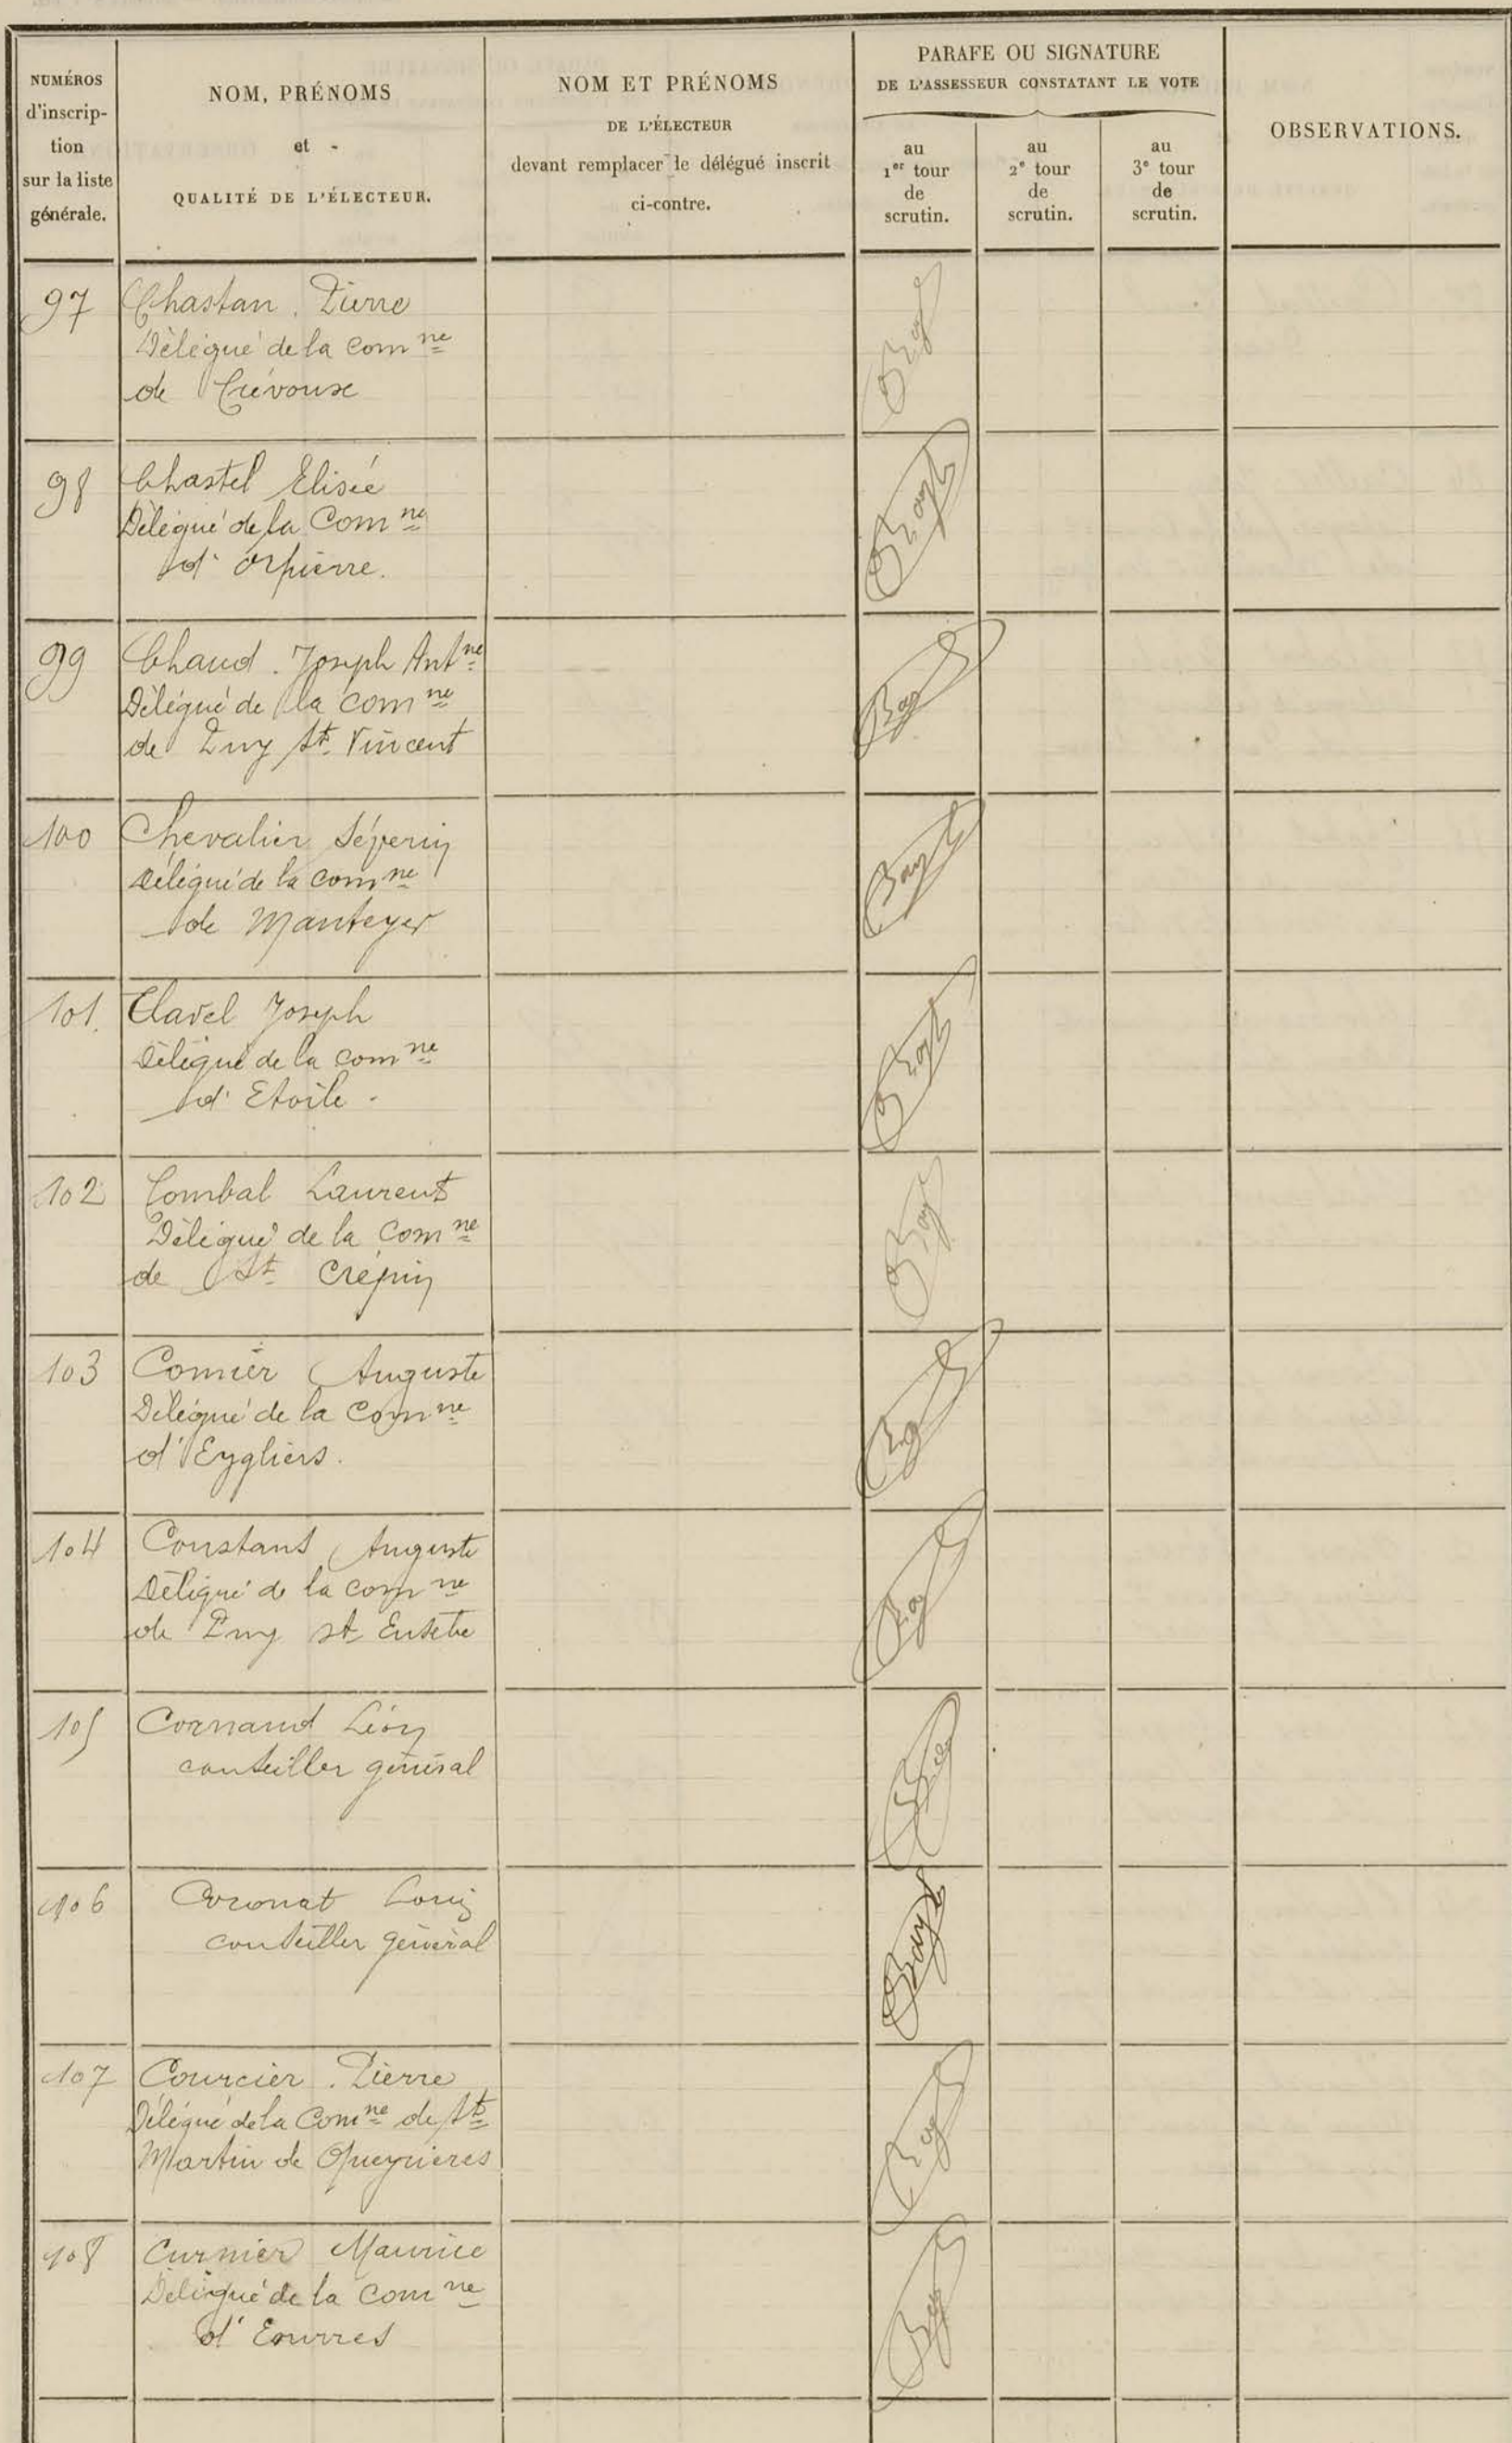 NUMÉROS
d'inscrip-
tion
sur la liste
générale.
NOM, PRÉNOMS
et -
QUALITÉ DE L'ÉLECTEUR.
NOM ET PRÉNOMS
DE L'ÉLECTEUR
devant remplacer le délégué inscrit
ci-contre.
PARAFE OU SIGNATURE
DE L'ASSESSEUR CONSTATANT LE VOTE
au
1er tour
de
scrutin.
au
2e tour
de
scrutin.
au
3e tour
de
scrutin.
OBSERVATIONS.
97 Chastan. Pierre
Délégué de la comne
de Crévoux
98 Chastel Elisée
Délégué de la Comne
d'Orpierre.
99 Chaud. Joseph Antne
Délégué de la comne
de Puy St. Vincent
100 Chevalier Séverin
Délégué de la comne
de Manteyer
101. Clavel Joseph
Délégué de la comne
d'Etoile.
102 Combal Laurent
Délégué de la Comne
de St Crépin
103 Comier Auguste
Délégué de la Comne
d'Eygliers.
104 Constans Auguste
Délégué de la comne
de Puy St Eusèbe
105 Cornand Léon
conseiller général
106 Coronat Louis
conseiller général
107 Courcier. Pierre
Délégué de la Comne de St
Martin de Queyrières
108 Curnier Maurice
Délégué de la Comne
d'Eourres